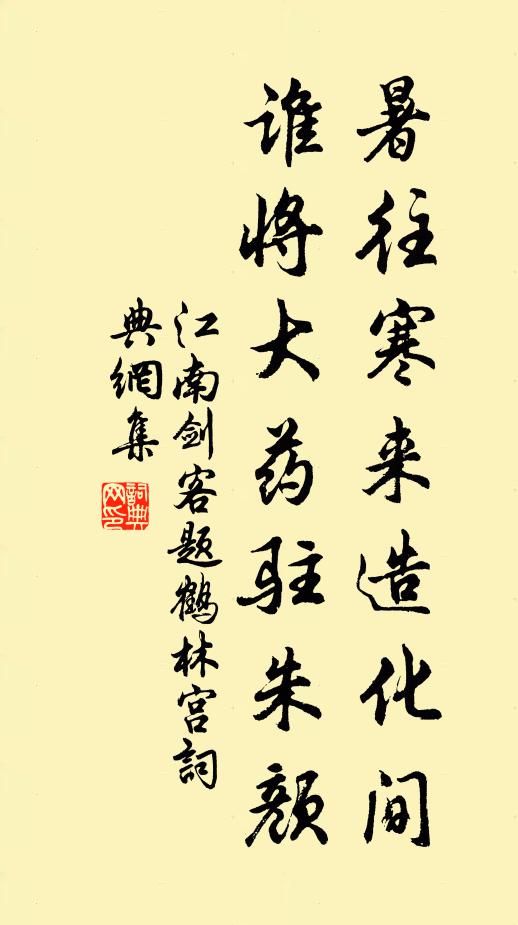 暑往寒来造化间
谁将大药驻朱颜
江南剑客题鹤林宫詞
典網集
詞典
网印